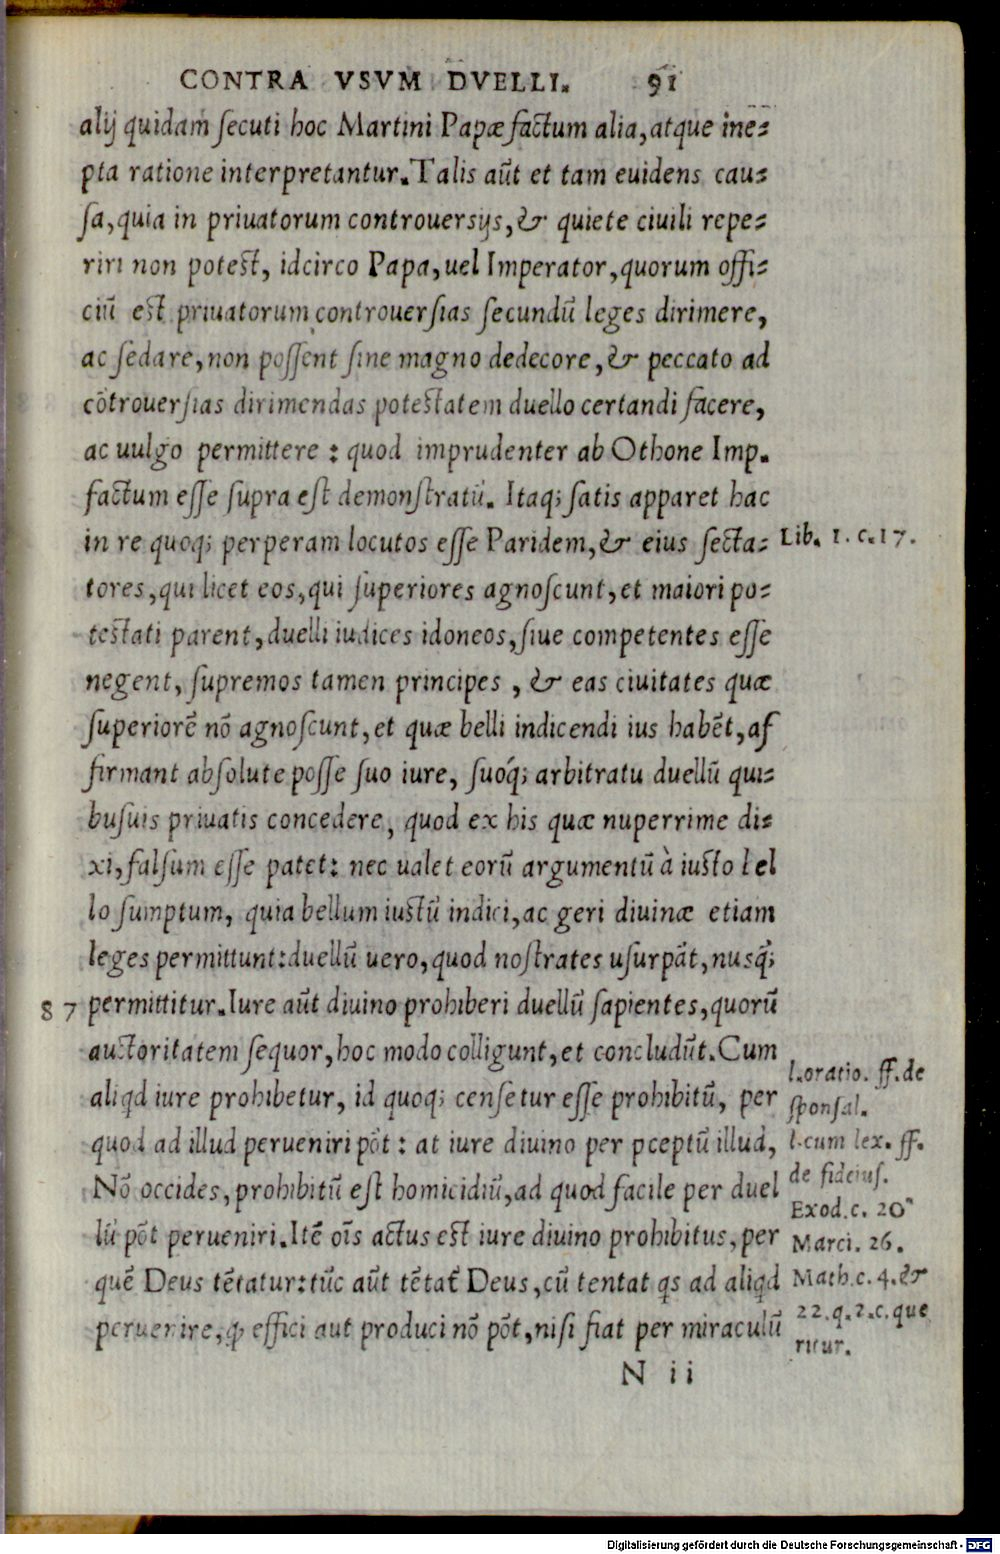 CONTRA VSVM DVELLI. 91
alij quidam ſecuti hoc Martini Papæ factum alia, atque ine⸗
pta ratione interpretantur. Talis aūt et tam euidens cau⸗
ſa, quia in priuatorum controuersijs, & quiete ciuili repe⸗
riri non poteſt, idcirco Papa, uel Imperator, quorum offi⸗
ciū eſt priuatorum controuerſias ſecundū leges dirimere,
ac ſedare, non poſſent ſine magno dedecore, & peccato ad
cōtrouerſias dirimendas poteſtatem duello certandi facere,
ac uulgo permittere : quod imprudenter ab Othone Imp.
factum eſſe ſupra eſt demonſtratū. Itaq; ſatis apparet hac
in re quoq; perperam locutos eſſe Paridem, & eius ſecta⸗
Lib. 1. c. 17.
tores, qui licet eos, qui ſuperiores agnoſcunt, et maiori po⸗
teſtati parent, duelli iudices idoneos, ſiue competentes eſſe
negent, ſupremos tamen principes , & eas ciuitates quæ
ſuperiorē nō agnoſcunt, et quæ belli indicendi ius habēt, af
firmant abſolute poſſe ſuo iure, ſuoq́; arbitratu duellū qui⸗
buſuis priuatis concedere, quod ex his quæ nuperrime di⸗
xi, falſum eſſe patet: nec ualet eorū argumentū à iuſto bel
lo ſumptum, quia bellum iuſtū indici, ac geri diuinæ etiam
leges permittunt: duellū uero, quod noſtrates uſurpāt, nusq̃;
87 permittitur. Iure aūt diuino prohiberi duellū ſapientes, quorū
auctoritatem ſequor, hoc modo colligunt, et concludūt. Cum
aliqd iure prohibetur, id quoq; cenſetur eſſe prohibitū, per
quod ad illud perueniri pōt : at iure diuino per pceptū illud,
Nō occides, prohibitū eſt homicidiū, ad quod facile per duel
lū pōt perueniri. Itē oīs actus eſt iure diuino prohibitus, per
quē Deus tētatur: tūc aūt tētat̃ Deus, cū tentat qs ad aliqd
peruenire, ꝙ effici aut produci nō pōt, niſi fiat per miraculū
l. oratio. ff. de
ſponſal.
l. cum lex. ff.
de fideiuſ.
Exod. c. 20
Marci. 26.
Math. c. 4. &
22. q. 2. c. que
ritur.
N ii
Digitalisierung gefördert durch die Deutsche Forschungsgemeinschaft - DFG